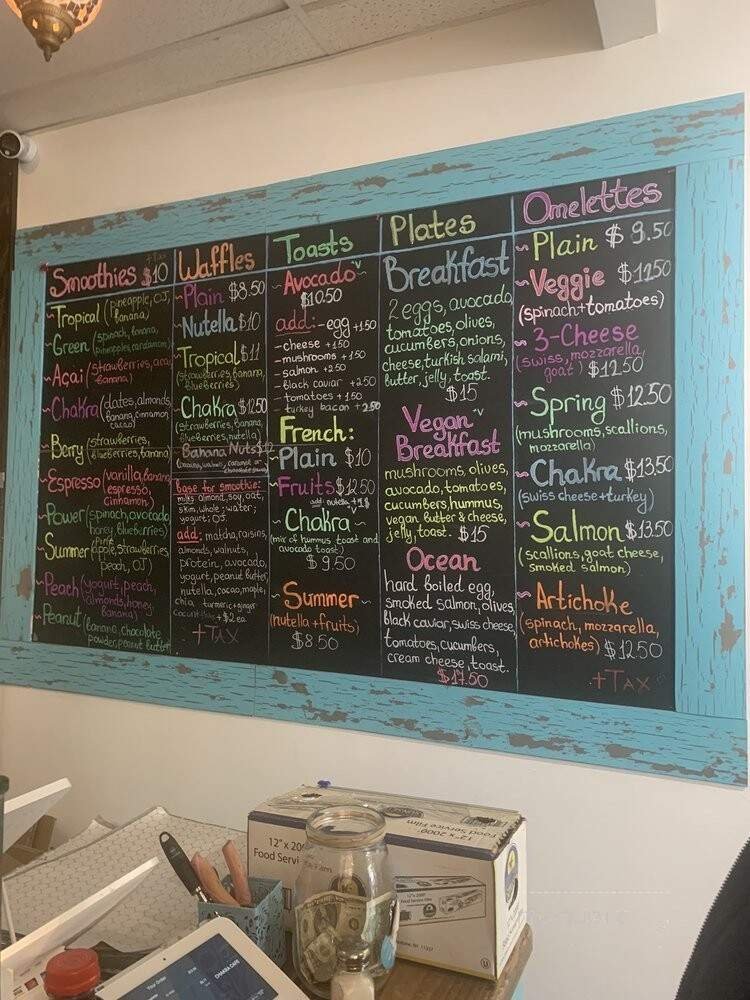 Smoothies $10
+Tax
~Tropical (pineapple, OJ,
banana)
~Green (spinach, banana,
pineapples, cardamom)
~Açai (strawberries, acai
banana)
~Chakra (dates, almonds,
banana, cinnamon,
cacao)
~Berry (strawberries,
blueberries, banana)
~Espresso (vanilla, banana,
espresso,
cinnamon)
~Power (spinach, avocado,
honey, blueberries)
~Summer (pineapple, strawberries,
peach, OJ)
~Peach (yogurt, peach,
almonds, honey,
banana)
~Peanut (banana, chocolate
powder, peanut butter
Waffles
~Plain $8.50
~Nutella $10
~Tropical $11
(strawberries, banana,
blueberries)
Chakra $12.50
(strawberries, banana,
blueberries, nutella)
~Banana Nuts
base for smoothie:
milk: almond, soy, oat,
skim, whole; water;
yogurt; OJ.
add: matcha, raisins,
almonds, walnuts,
protein, avocado,
yogurt, peanut butter,
nutella, cacao, maple,
chia turmeric + ginger
+$2 ea
+TAX
Toasts
~Avocado~ v
$10.50
add: - egg +1.50
- cheese +1.50
- mushrooms +1.50
- salmon +2.50
- black caviar +2.50
- tomatoes +1.50
- turkey bacon +2.50
French:
~Plain $10
~Fruits $12.50
add: nutella +1$
~Chakra~
(mix of hummus toast and
avocado toast)
$9.50
~Summer~
(nutella + fruits)
$8.50
Plates
Breakfast
2 eggs, avocado,
tomatoes, olives,
cucumbers, onions,
cheese, turkish salami,
butter, jelly, toast.
$15
Vegan v
Breakfast
mushrooms, olives,
avocado, tomatoes,
cucumbers, hummus,
vegan butter & cheese,
jelly, toast. $15
Ocean
hard boiled egg,
smoked salmon, olives,
black caviar, swiss cheese,
tomatoes, cucumbers,
cream cheese, toast.
$17.50
Omelettes
~Plain $9.50
~Veggie $11.50
(spinach + tomatoes)
~3-Cheese
(swiss, mozzarella,
goat) $12.50
~Spring $12.50
(mushrooms, scallions,
mozzarella)
~Chakra $13.50
(swiss cheese + turkey)
~Salmon $13.50
(scallions, goat cheese,
smoked salmon)
~Artichoke
(spinach, mozzarella,
artichokes) $12.50
+TAX
12" x 2000'
Food Service Film
12" x 200
Food Servi
Your Order
CHAKRA CAFE